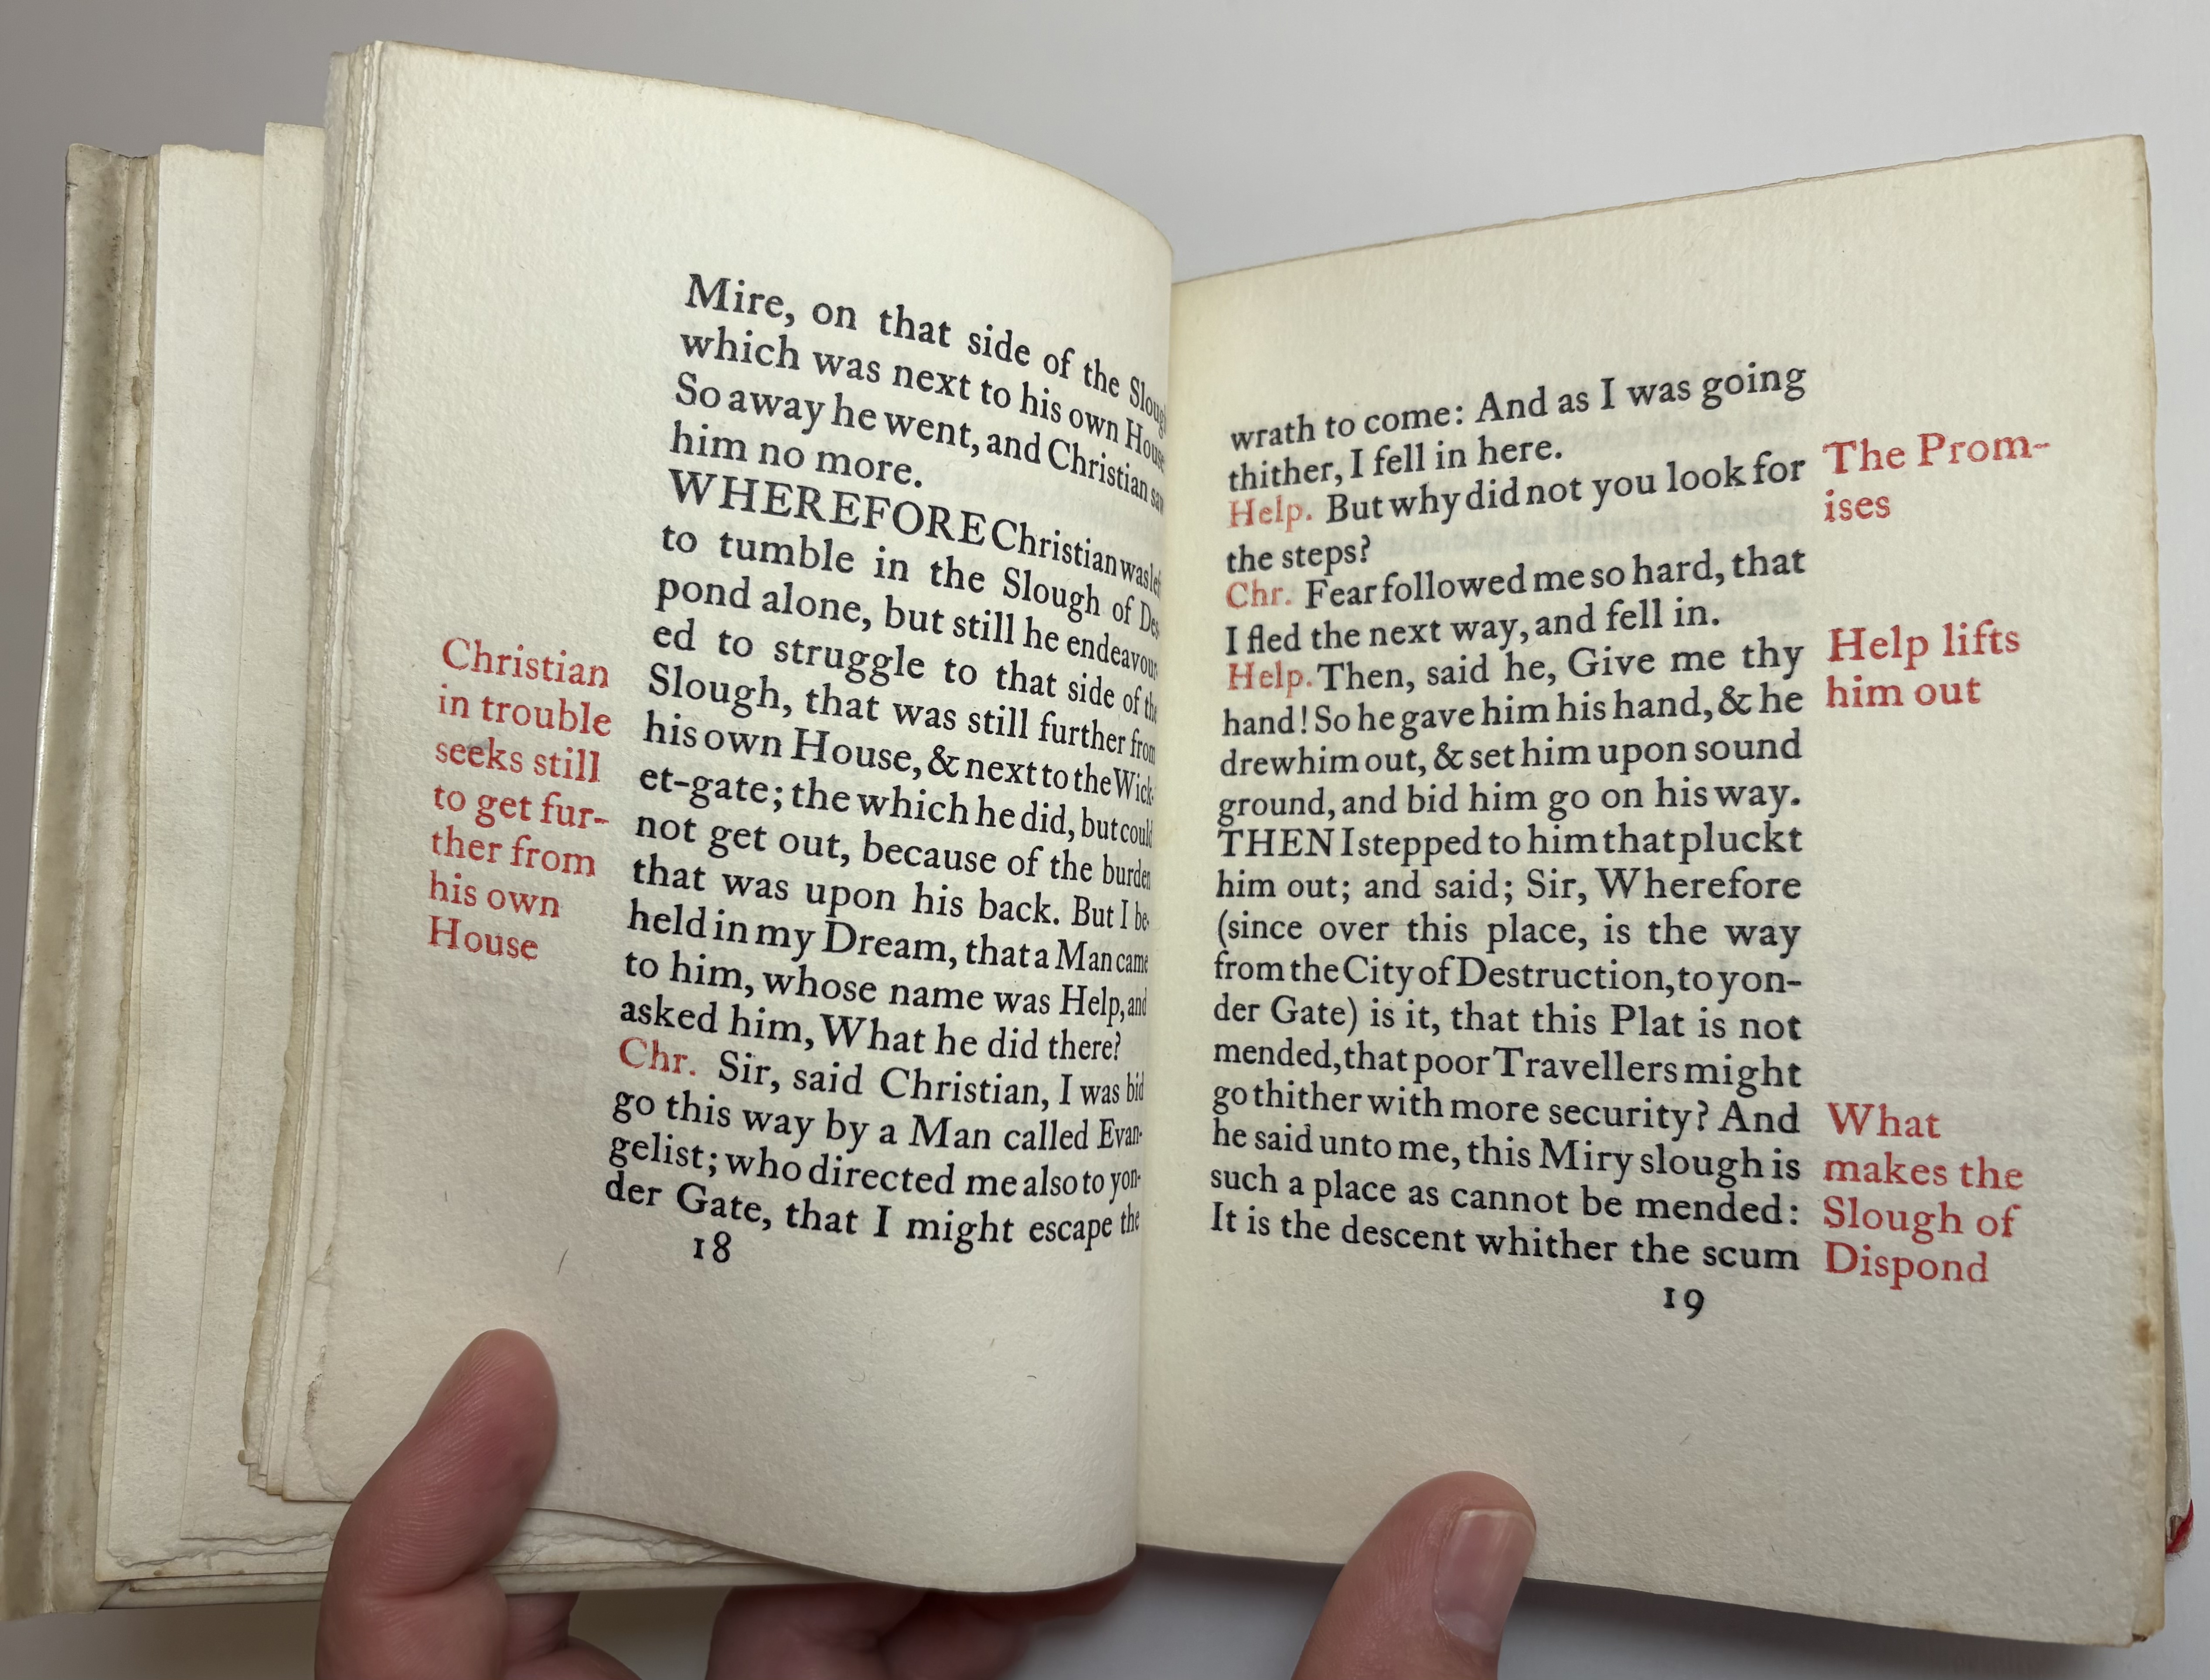 Mire, on that side of the Slough
which was next to his own House
So away he went, and Christian saw
him no more.
WHEREFORE Christian was left
to tumble in the Slough of Des
pond alone, but still he endeavour
ed to struggle to that side of the
Slough, that was still further from
his own House, & next to the Wick-
et-gate; the which he did, but could
not get out, because of the burden
that was upon his back. But I be-
held in my Dream, that a Man came
to him, whose name was Help, and
asked him, What he did there?
Chr. Sir, said Christian, I was bid
go this way by a Man called Evan-
gelist; who directed me also to yon-
der Gate, that I might escape the
18
Christian
in trouble
seeks still
to get fur-
ther from
his own
House
wrath to come: And as I was going
thither, I fell in here.
Help. But why did not you look for
the steps?
Chr. Fear followed me so hard, that
I fled the next way, and fell in.
Help. Then, said he, Give me thy
hand! So he gave him his hand, & he
drew him out, & set him upon sound
ground, and bid him go on his way.
THEN I stepped to him that pluckt
him out; and said; Sir, Wherefore
(since over this place, is the way
from the City of Destruction, to yon-
der Gate) is it, that this Plat is not
mended, that poor Travellers might
go thither with more security? And
he said unto me, this Miry slough is
such a place as cannot be mended:
It is the descent whither the scum
19
The Prom-
ises
Help lifts
him out
What
makes the
Slough of
Dispond